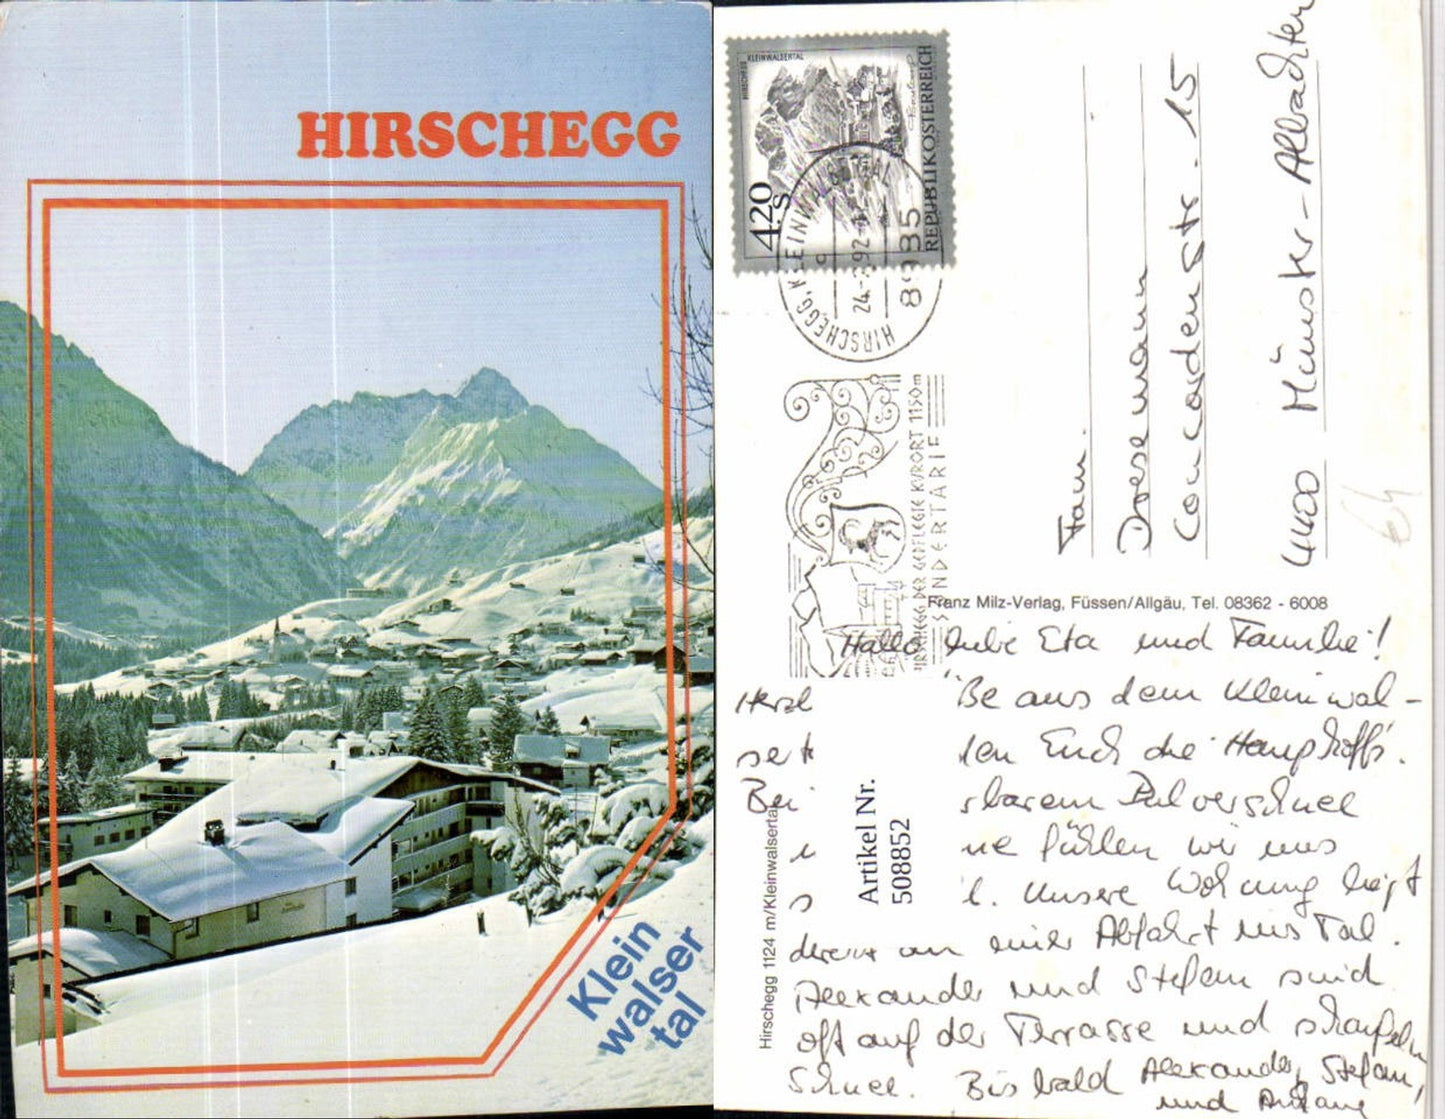 HIRSCHEGG
Klein
walser
tal
HIRSCHEGG KLEINWALSERTAL
4.20 S
REPUBLIK ÖSTERREICH
HIRSCHEGG, KLEINWALSERTAL
24.-3.92
8985
HIRSCHEGG DER GEPFLEGTE KURORT 1150m
SONDERTARIF
Fam.
Dresemann
Concordenstr. 15
4400 Münster-Albachten
Franz Milz-Verlag, Füssen/Allgäu, Tel. 08362 - 6008
Hirschegg 1124 m/Kleinwalsertal
Artikel Nr.
508852
Hallo liebe Eta und Familie!
Herzl ße aus dem Kleinwal-
sert den Euch die
Bei rbarem Pulverschnee
ne fühlen wir uns
l. Unsere Wohnung liegt
direkt an einer Abfahrt ins Tal.
Alexander und Stefan sind
oft auf der Terrasse und schaufeln
Schnee. Bis bald Alexander, Stefan,
und